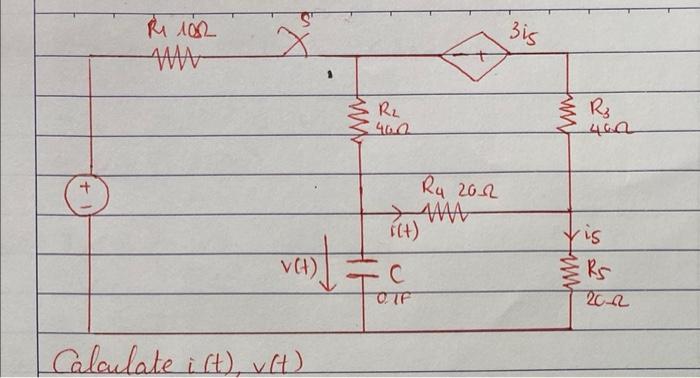 R1 10Ω
S
3i5
+
R2
40Ω
R3
40Ω
R4 20Ω
+
-
i(t)
i5
v(t)
C
0.1F
R5
20Ω
Calculate i(t), v(t)